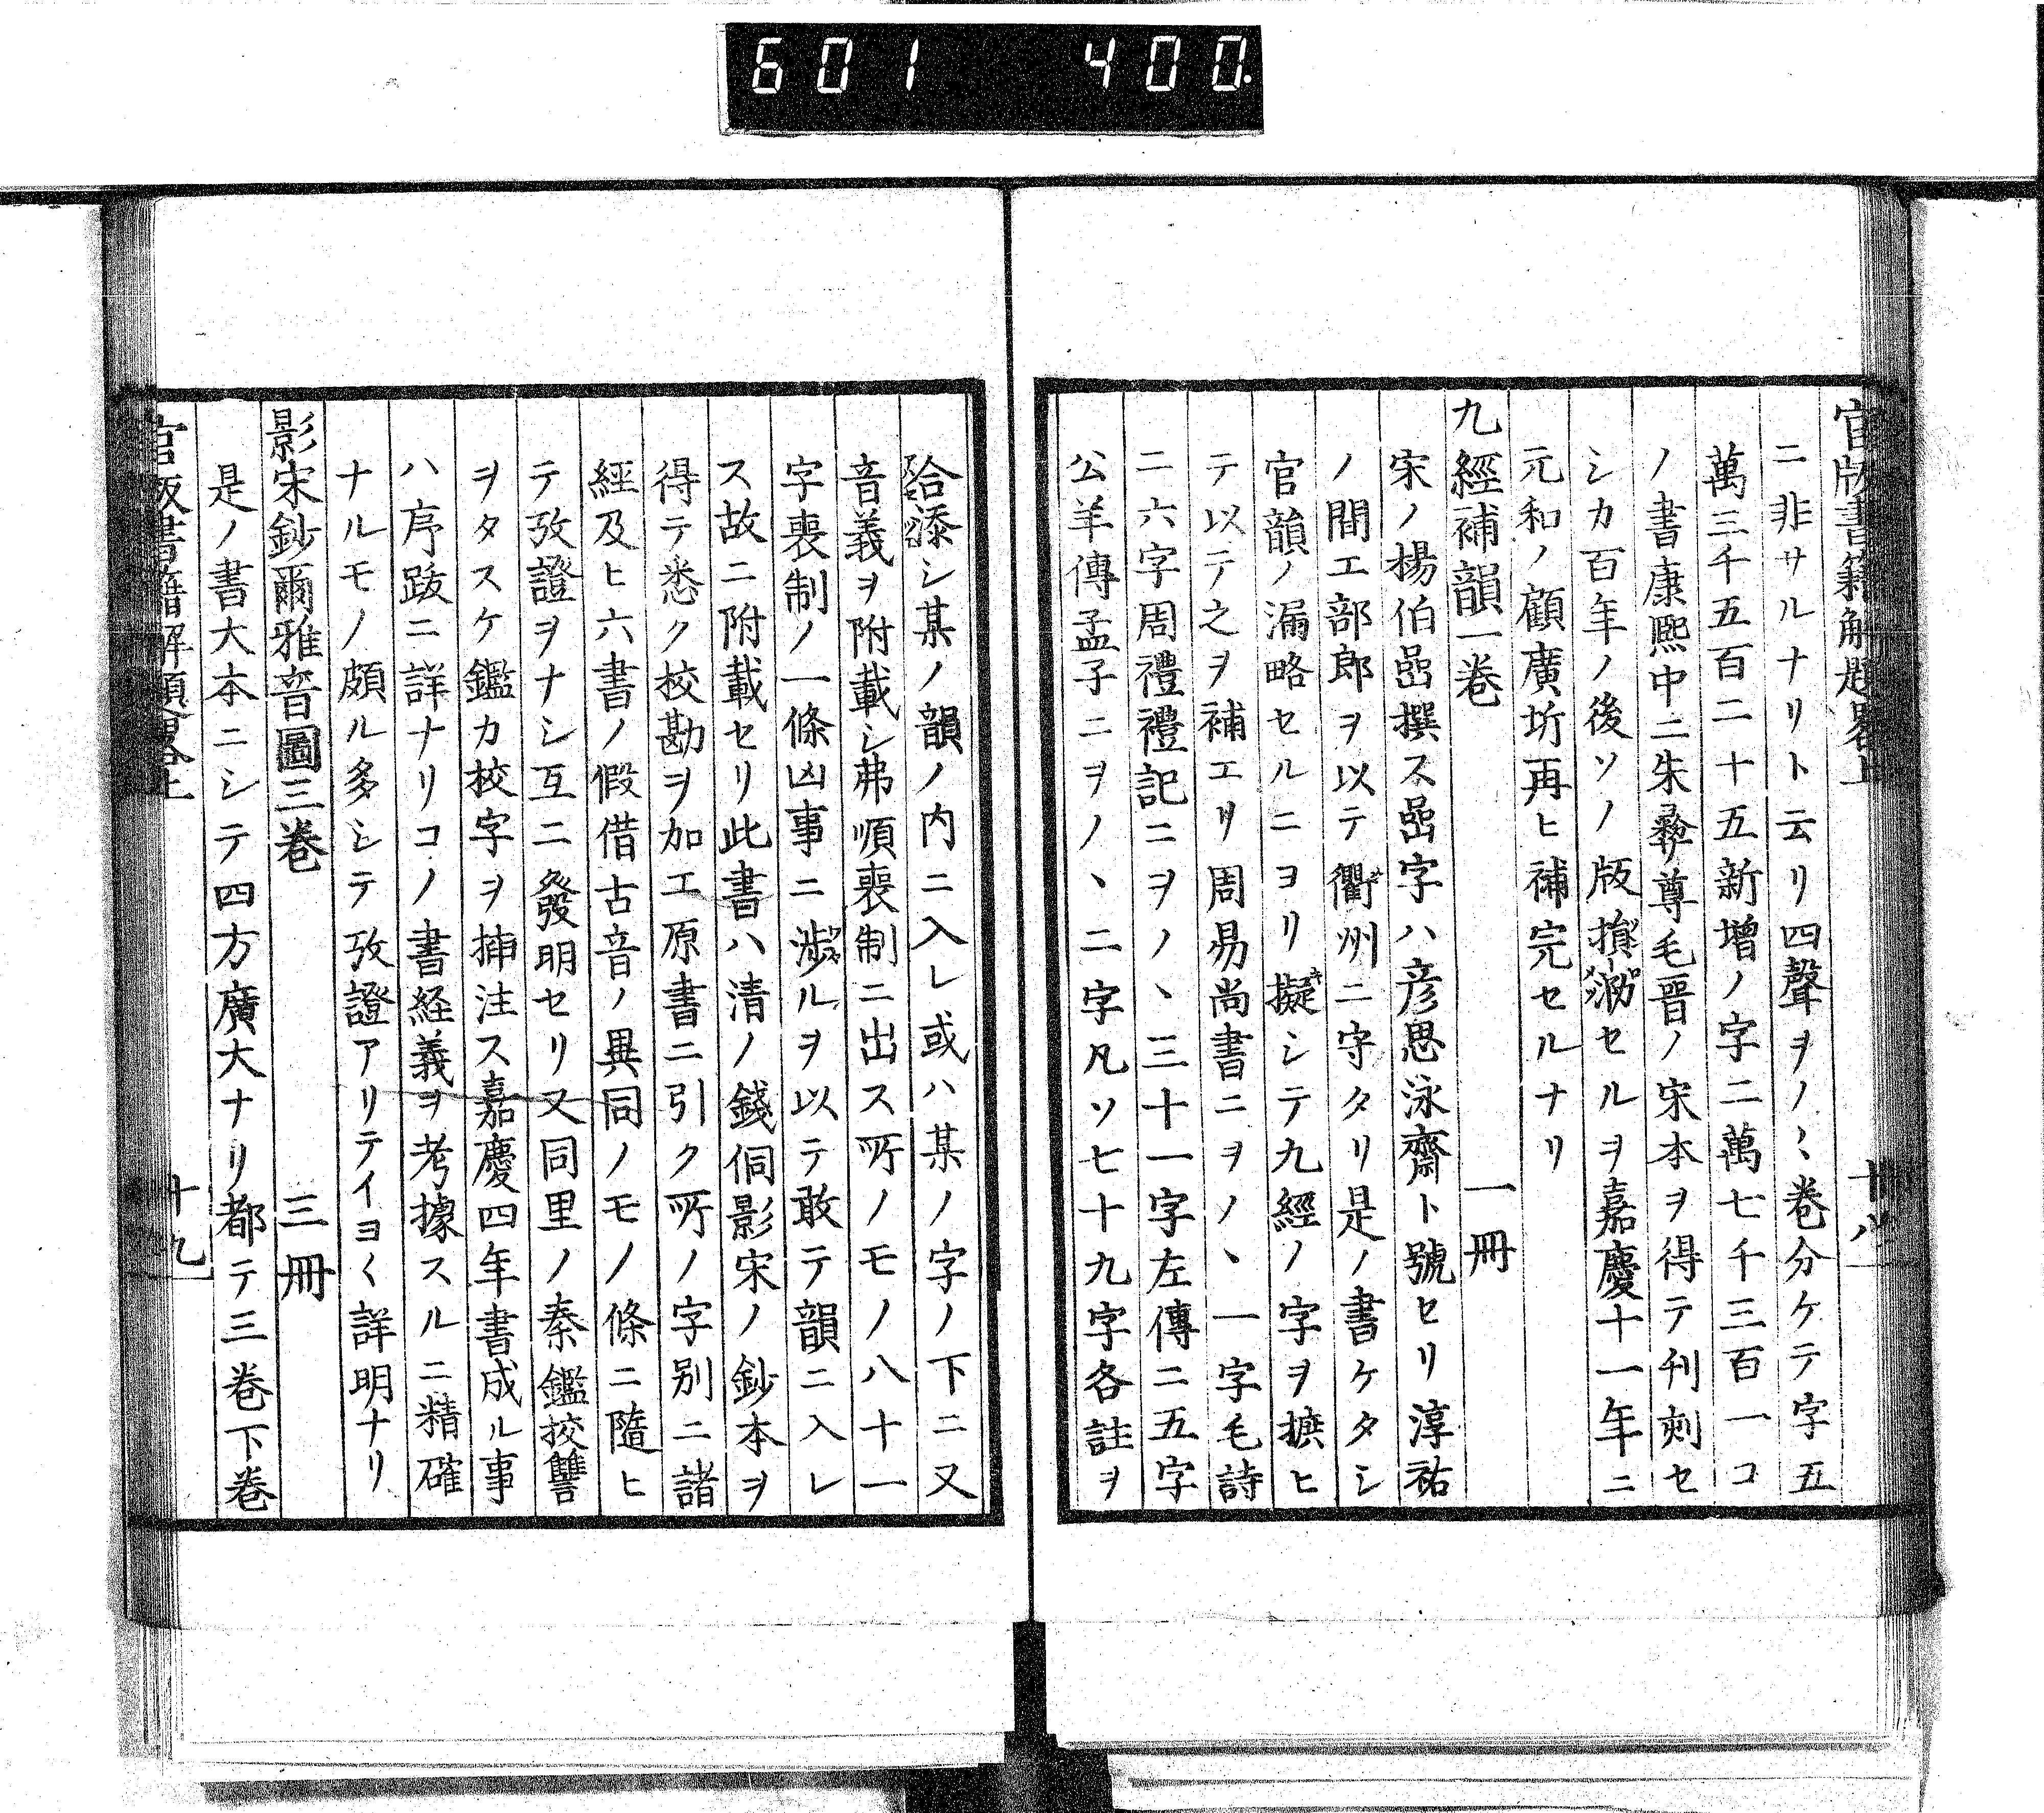 601 400.
官版書籍解題畧上 十八
ニ非サルナリト云リ四聲ヲノ〻巻分ケテ字五
萬三千五百二十五新增ノ字二萬七千三百一コ
ノ書康熙中ニ朱彝尊毛晉ノ宋本ヲ得テ刊刻セ
シカ百年ノ後ソノ版損泐セルヲ嘉慶十一年ニ
元和ノ顧廣圻再ヒ補完セルナリ
九經補韻一卷 一冊
宋ノ楊伯嵒撰ス嵒字ハ彦思泳齋ト號セリ淳祐
ノ間工部郎ヲ以テ衢州ニ守タリ是ノ書ケタシ
官韻ノ漏略セルニヨリ擬シテ九經ノ字ヲ摭ヒ
テ以テ之ヲ補エリ周易尚書ニヲノヽ一字毛詩
ニ六字周禮禮記ニヲノヽ三十一字左傳ニ五字
公羊傳孟子ニヲノヽ二字凡ソ七十九字各註ヲ
合添シ某ノ韻ノ内ニ入レ或ハ某ノ字ノ下ニ又
音義ヲ附載シ弗順喪制ニ出ス所ノモノ八十一
字喪制ノ一條凶事ニ渉ルヲ以テ敢テ韻ニ入レ
ス故ニ附載セリ此書ハ清ノ錢侗影宋ノ鈔本ヲ
得テ悉ク校勘ヲ加エ原書ニ引ク所ノ字別ニ諸
經及ヒ六書ノ假借古音ノ異同ノモノ條ニ隨ヒ
テ攷證ヲナシ互ニ發明セリ又同里ノ秦鑑挍讐
ヲタスケ鑑カ校字ヲ揷注ス嘉慶四年書成ル事
ハ序跋ニ詳ナリコノ書経義ヲ考據スルニ精確
ナルモノ頗ル多シテ攷證アリテイヨ〱詳明ナリ
影宋鈔爾雅音圖三卷 三冊
是ノ書大本ニシテ四方廣大ナリ都テ三卷下卷
官版書籍解題畧上 十九